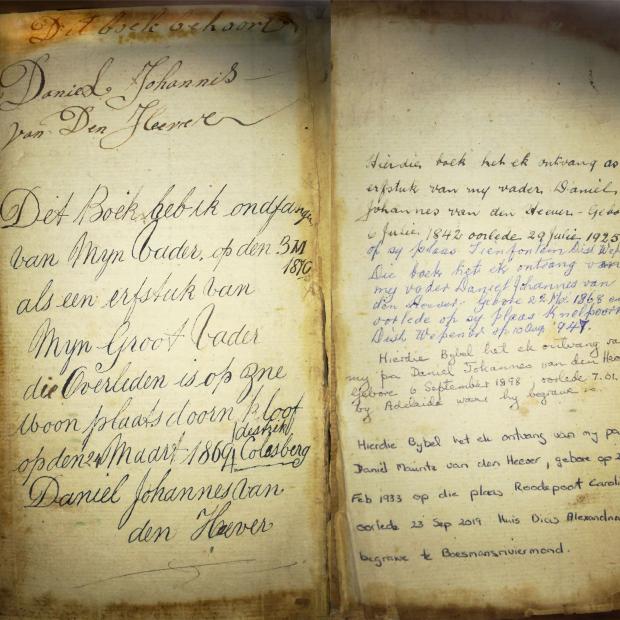 Dit boek behoort
Daniel Johannis
van Den Heever
Dit Boek heb ik ondfangen
van Myn Vader, op den 3 M
1870
als een erfstuk van
Myn Groot Vader
die Overleden is op zne
woon plaats doorn kloof
distrikt
op den 24 Maart 1869 Colesberg
Daniel Johannes van
den Heever
Hierdie boek het ek ontvang as
erfstuk van my vader Daniel
Johannes van den Heever - Gebo
6 Junie 1842 oorlede 29 Julie 1925
op sy plaas Tienfontein Dist Wep
Die boek het ek ontvang van
my vader Daniel Johannes van
den Heever Gebore 22 1868 en
oorlede op sy plaas Knelpoort
Distr. Wepener op 10 Aug 1947.
Hierdie Bybel het ek ontvang va
my pa Daniel Johannes van den Heev
Gebore 6 September 1898, oorlede 7.01.
by Adelaide waar hy begrawe is.
Hierdie Bybel het ek ontvang van my pa
Daniël Mauritz van den Heever, gebore op 2
Feb 1933 op die plaas Roodepoort Caroli
oorlede 23 Sep 2019 Huis Dias Alexandria
begrawe te Boesmansriviermond.